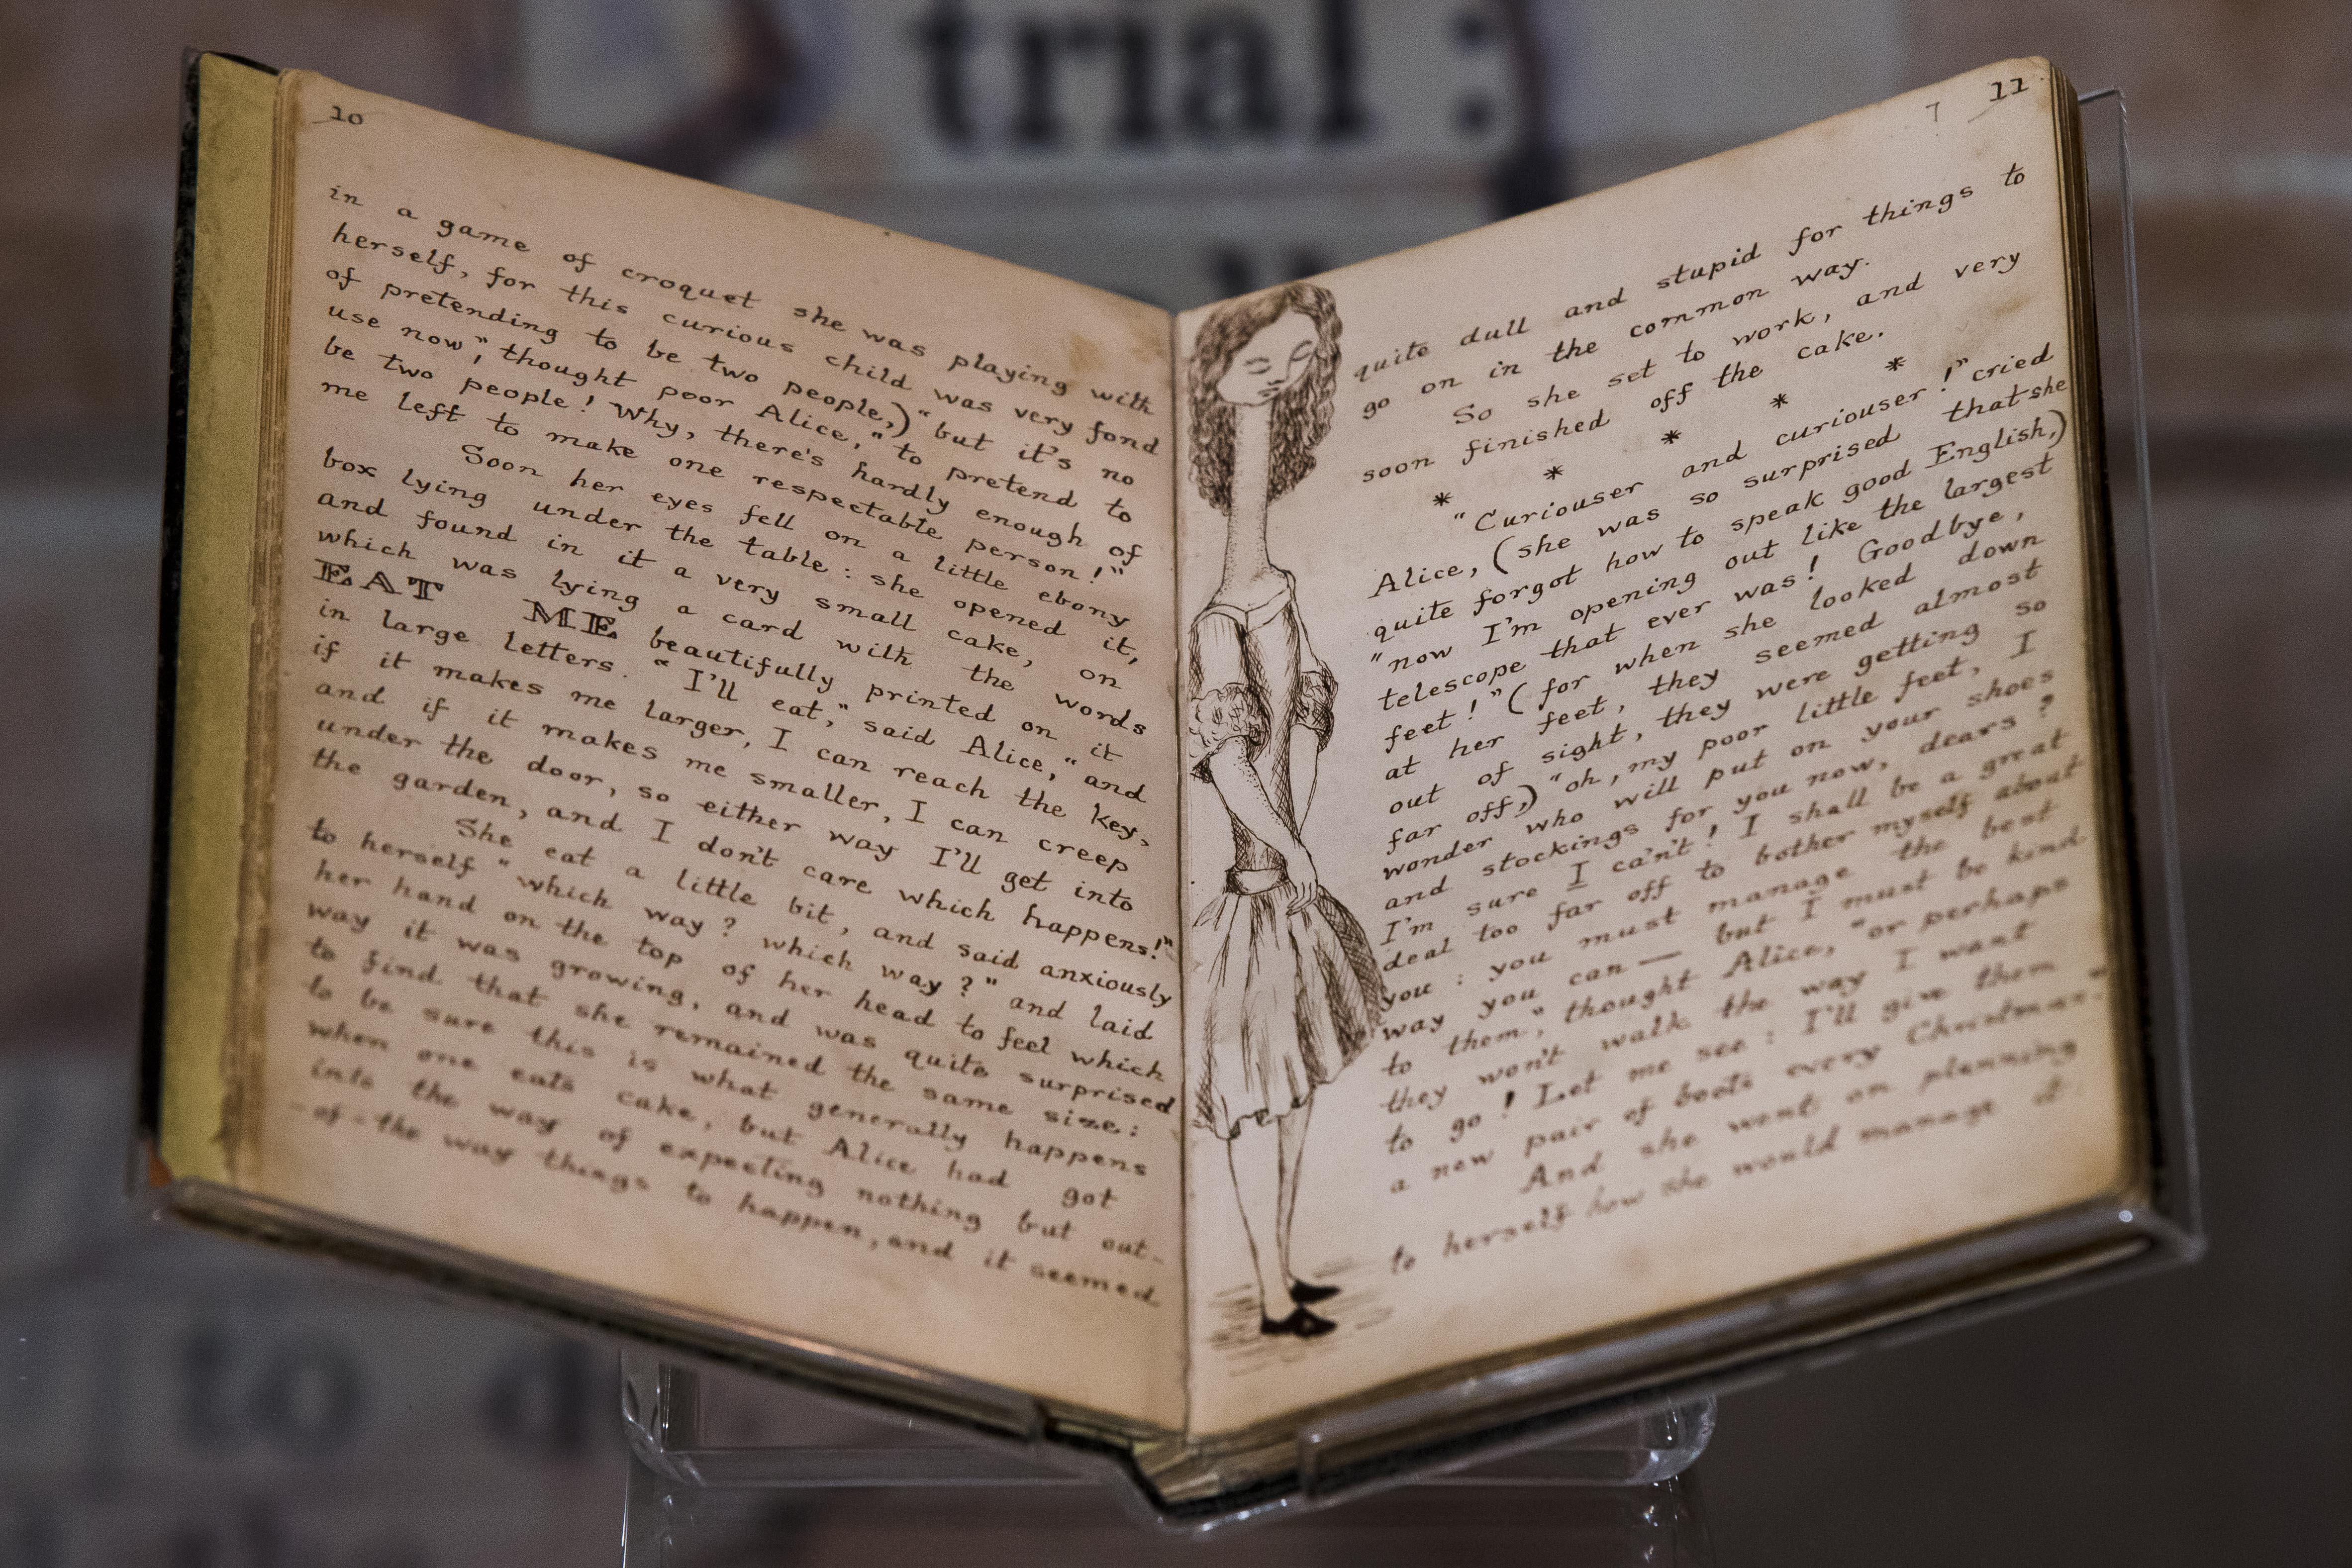 trial :
10
in a game of croquet she was playing with
herself, for this curious child was very fond
of pretending to be two people,) "but it's no
use now," thought poor Alice, "to pretend to
be two people! Why, there's hardly enough of
me left to make one respectable person!"
Soon her eyes fell on a little ebony
box lying under the table : she opened it,
and found in it a very small cake, on
which was lying a card with the words
EAT ME beautifully printed on it
in large letters. "I'll eat," said Alice, "and
if it makes me larger, I can reach the key,
and if it makes me smaller, I can creep
under the door, so either way I'll get into
the garden, and I don't care which happens!"
She eat a little bit, and said anxiously
to herself "which way? which way?" and laid
her hand on the top of her head to feel which
way it was growing, and was quite surprised
to find that she remained the same size :
to be sure this is what generally happens
when one eats cake, but Alice had got
into the way of expecting nothing but out-
-of-the way things to happen, and it seemed
7 11
quite dull and stupid for things to
go on in the common way.
So she set to work, and very
soon finished off the cake.
* * * * *
"Curiouser and curiouser!" cried
Alice, (she was so surprised that she
quite forgot how to speak good English,)
"now I'm opening out like the largest
telescope that ever was! Goodbye,
feet!" (for when she looked down
at her feet, they seemed almost
out of sight, they were getting so
far off,) "oh, my poor little feet, I
wonder who will put on your shoes
and stockings for you now, dears?
I'm sure I can't! I shall be a great
deal too far off to bother myself about
you : you must manage the best
way you can — but I must be kind
to them," thought Alice, "or perhaps
they won't walk the way I want
to go! Let me see : I'll give them
a new pair of boots every Christmas."
And she went on planning
to herself how she would manage it
to d